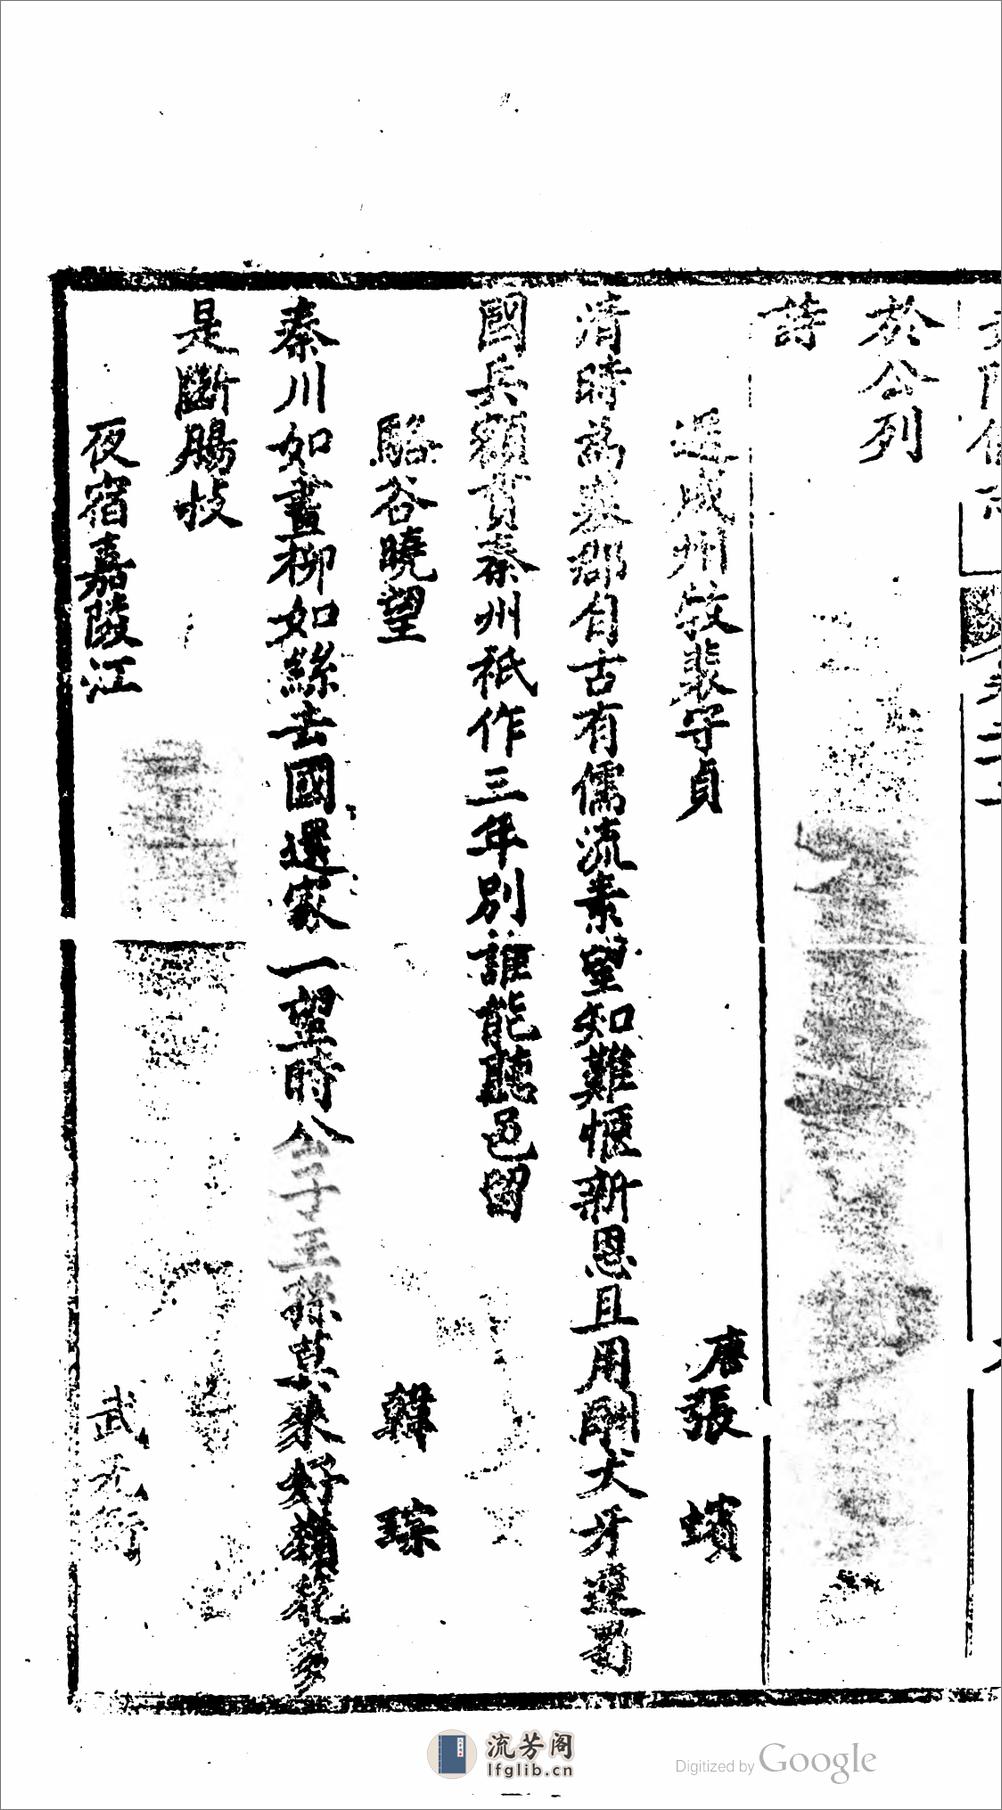 於公列
詩
送成州牧裴守貞
唐張蠙
清時為塞郡自古有儒流素望知難愜新恩且用酬犬牙連蜀
國兵額貫秦州祇作三年別誰能聽邑留
駱谷曉望
韓琮
秦川如畫柳如絲去國還家一望時公子王孫莫來好嶺花多
是斷腸枝
夜宿嘉陵江
武元衡
流芳阁
lfglib.cn
Digitized by Google